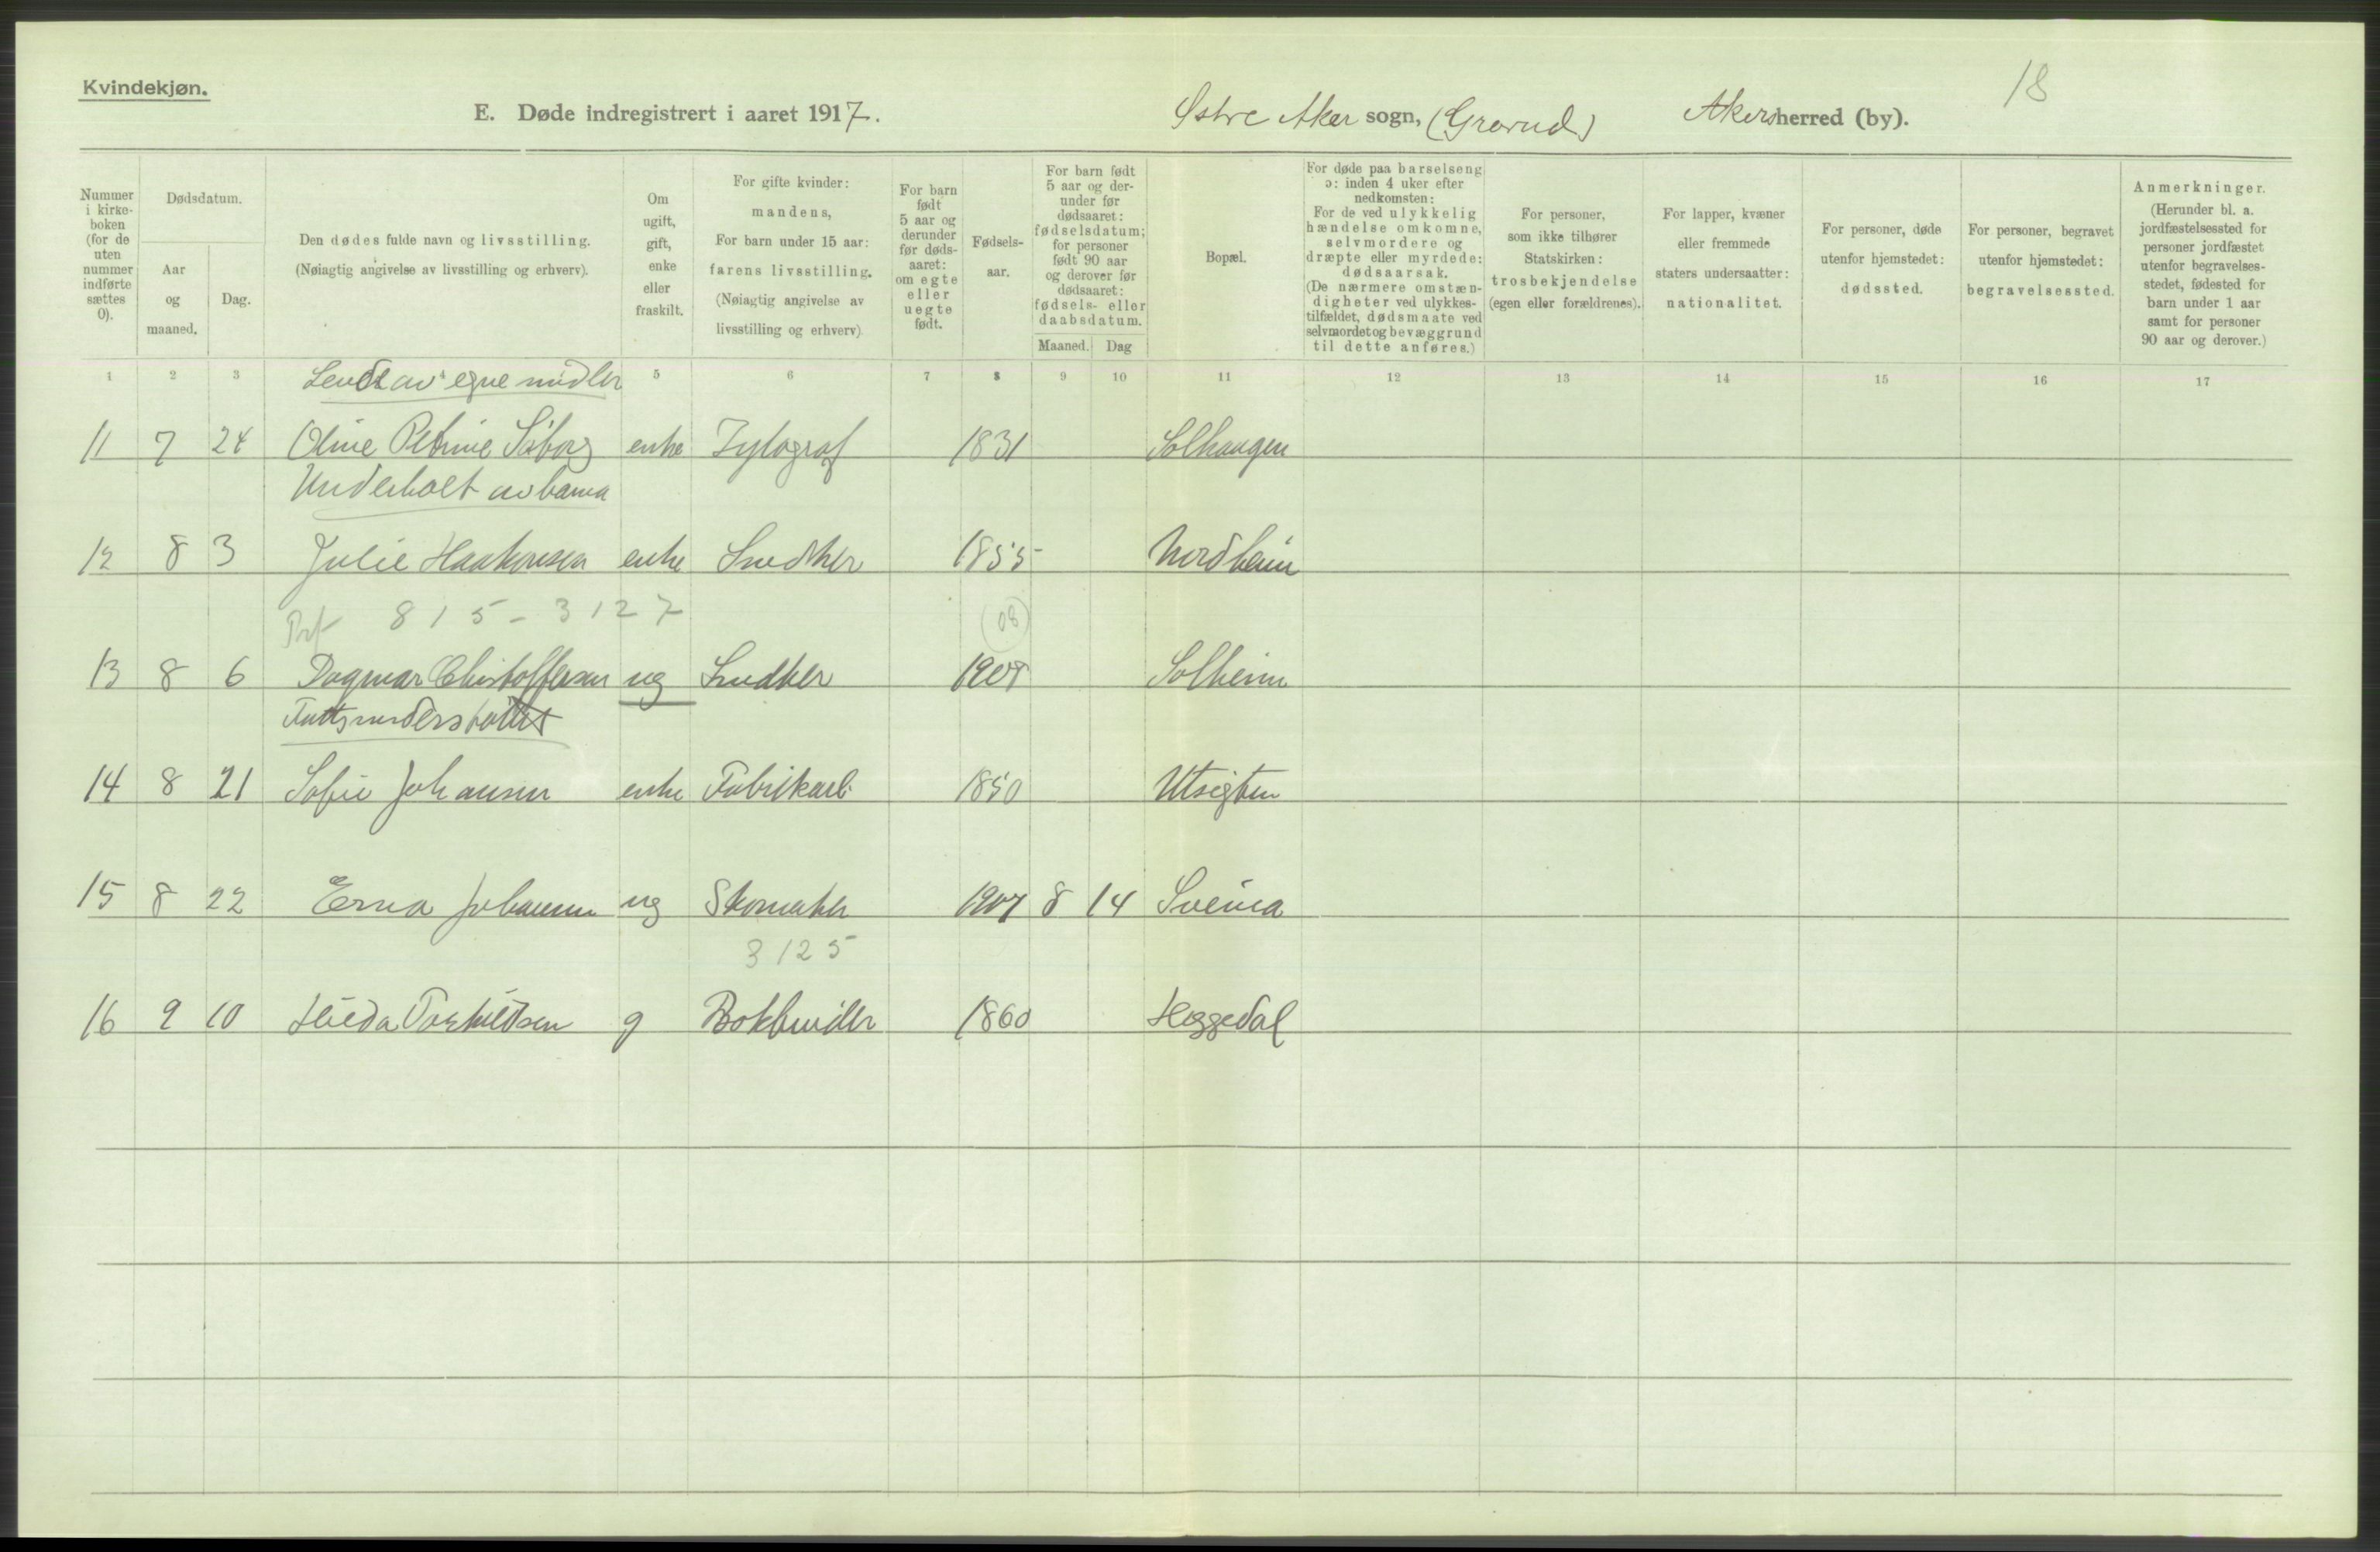 Kvindekjøn.
18
E. Døde indregistrert i aaret 1917. Østre Aker sogn, (Grorud) Akers herred (by).
Nummer i kirke- boken (for de uten nummer indførte sættes 0).
Dødsdatum.
Aar og maaned.
Dag.
Den dødes fulde navn og livsstilling. (Nøiagtig angivelse av livsstilling og erhverv).
Om ugift, gift, enke eller fraskilt.
For gifte kvinder: mandens, For barn under 15 aar: farens livsstilling. (Nøiagtig angivelse av livsstilling og erhverv)
For barn født 5 aar og derunder før døds- aaret: om egte eller uegte født.
Fødsels- aar.
For barn født 5 aar og der- under før dødsaaret: fødselsdatum; for personer født 90 aar og derover før dødsaaret: fødsels- eller daabsdatum.
Maaned. Dag
Bopæl.
For døde paa barselseng ɔ: inden 4 uker efter nedkomsten: For de ved ulykkelig hændelse omkomne, selvmordere og dræpte eller myrdede: dødsaarsak. (De nærmere omstæn- digheter ved ulykkes- tilfældet, dødsmaate ved selvmordet og bevæggrund til dette anføres.)
For personer, som ikke tilhører Statskirken: trosbekjendelse (egen eller forældrenes).
For lapper, kvæner eller fremmede staters undersaatter: nationalitet.
For personer, døde utenfor hjemstedet: dødssted.
For personer, begravet utenfor hjemstedet: begravelsessted.
Anmerkninger. (Herunder bl. a. jordfæstelsessted for personer jordfæstet utenfor begravelses- stedet, fødested for barn under 1 aar samt for personer 90 aar og derover.)
1 2 3 5 6 7 8 9 10 11 12 13 14 15 16 17
Levde av egne midler
11 7 24 Oline Petrine Siborg enke Zylograf 1831 Solhaugen
Underholt av barna
12 8 3 Julie Haakonsen enke Snedker 1855 Nordheim
815-3127 (08)
13 8 6 Dagmar Christoffersen ug Snedker 1908 Solheim
Fattigunderstøttet
14 8 21 Sofie Johansen enke Fabrikarb. 1850 Utsigten
15 8 22 Erna Johansen ug Skomaker 1907 8 14 Svenea
3125
16 9 10 Hilda Torkildsen g Bokbinder 1860 Heggedal